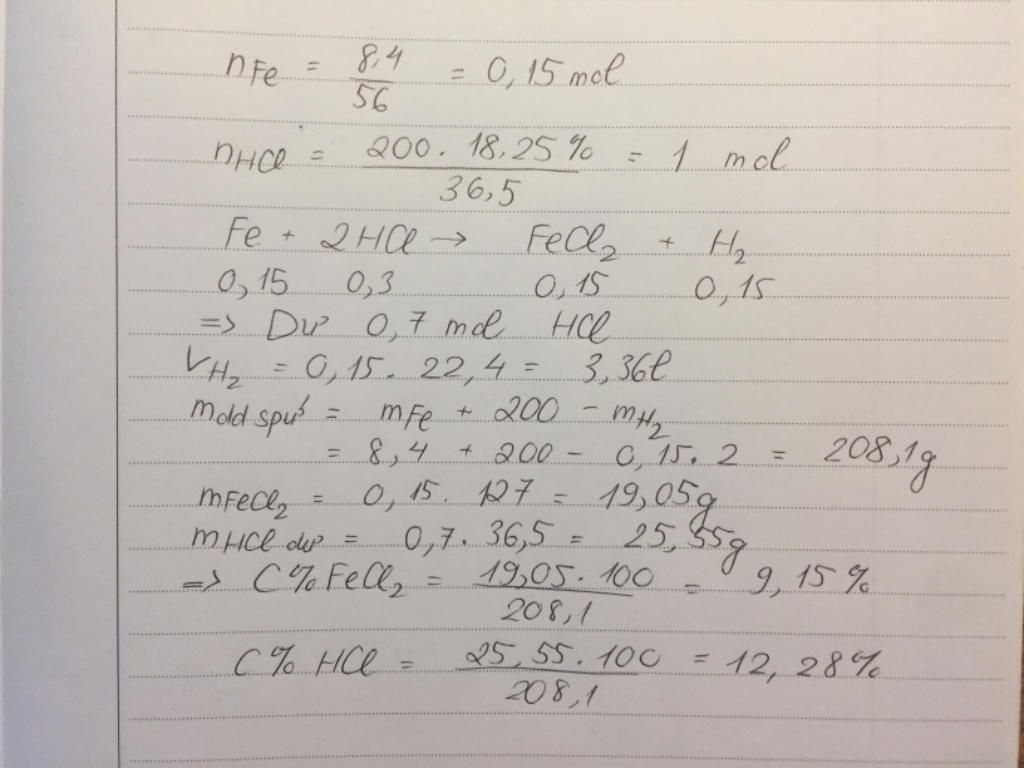 nFe = 8,4/56 = 0,15 mol
nHCl = 200. 18,25%/36,5 = 1 mol
Fe + 2HCl → FeCl₂ + H₂
0,15 0,3 0,15 0,15
=> Dư 0,7 mol HCl
VH₂ = 0,15. 22,4 = 3,36l
mdd spứ = mFe + 200 - mH₂
= 8,4 + 200 - 0,15. 2 = 208,1g
mFeCl₂ = 0,15. 127 = 19,05g
mHCl dư = 0,7. 36,5 = 25,55g
=> C% FeCl₂ = 19,05. 100/208,1 = 9,15%
C% HCl = 25,55. 100/208,1 = 12,28%